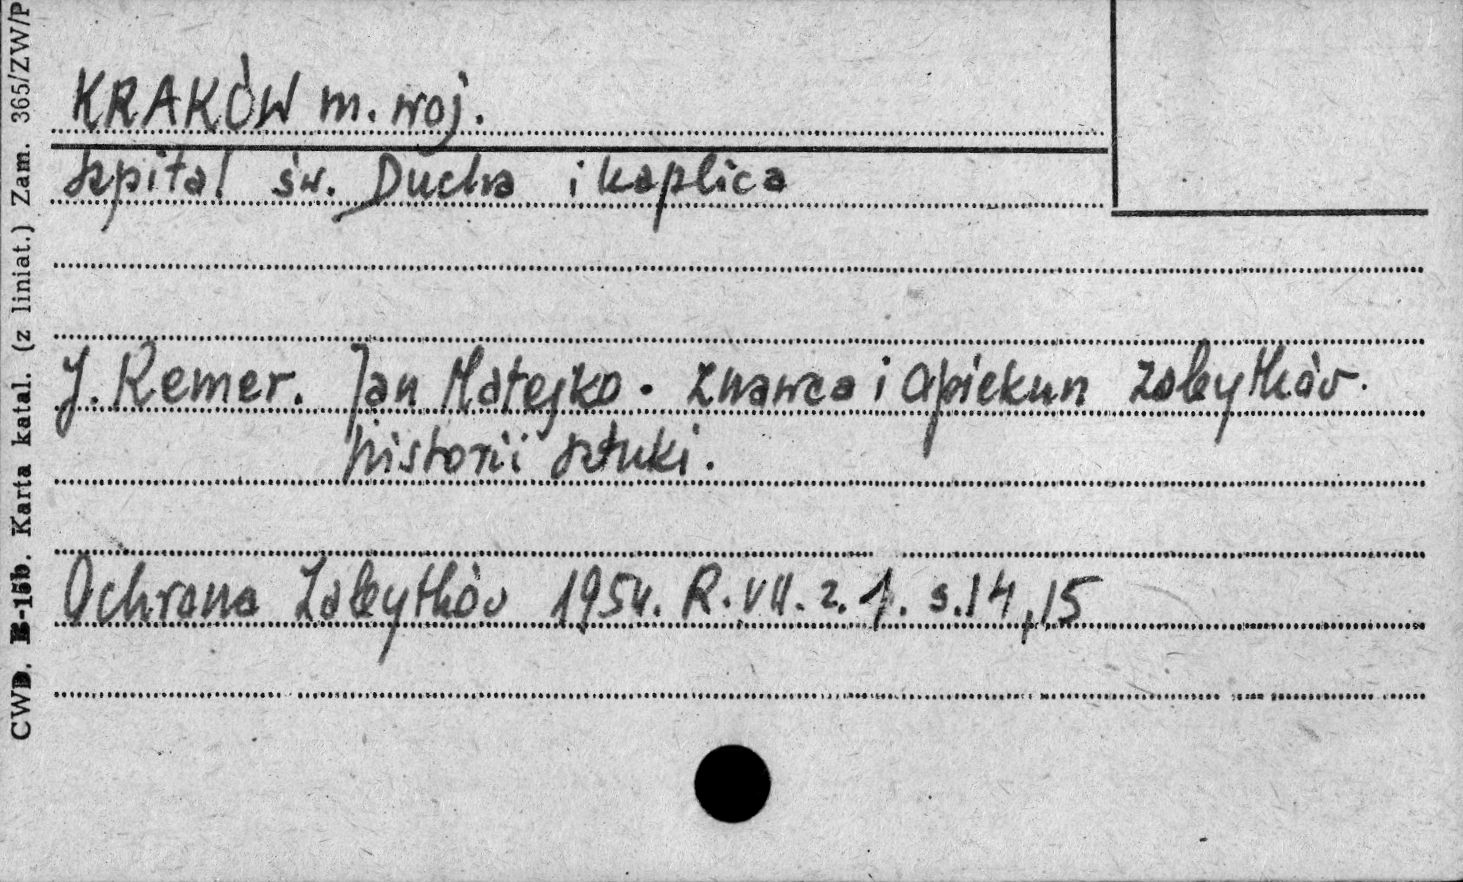 KRAKÓW m. woj.
Szpital św. Ducha i kaplica
J. Remer. Jan Matejko. Znawca i opiekun zabytków.
historii sztuki.
Ochrona Zabytków 1954. R. VII. z. 1. s. 14, 15
CWD. B-15b. Karta katal. (z liniat.) Zam. 365/ZW/P